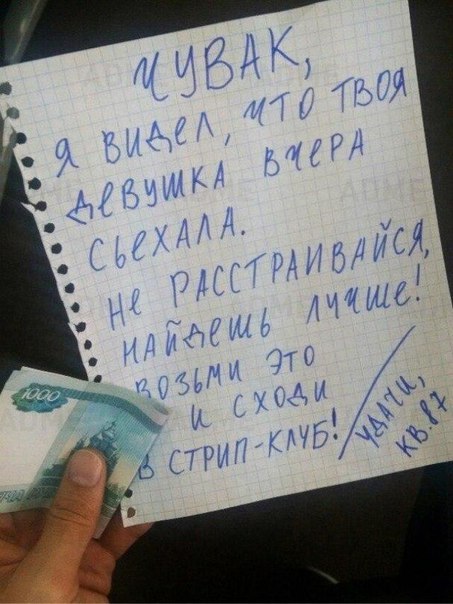 ЧУВАК,
Я ВИДЕЛ, ЧТО ТВОЯ
ДЕВУШКА ВЧЕРА
СЬЕХАЛА.
НЕ РАССТРАИВАЙСЯ,
НАЙДЕШЬ ЛУЧШЕ!
ВОЗЬМИ ЭТО
И СХОДИ
В СТРИП-КЛУБ!
УДАЧИ,
КВ. 87
1000